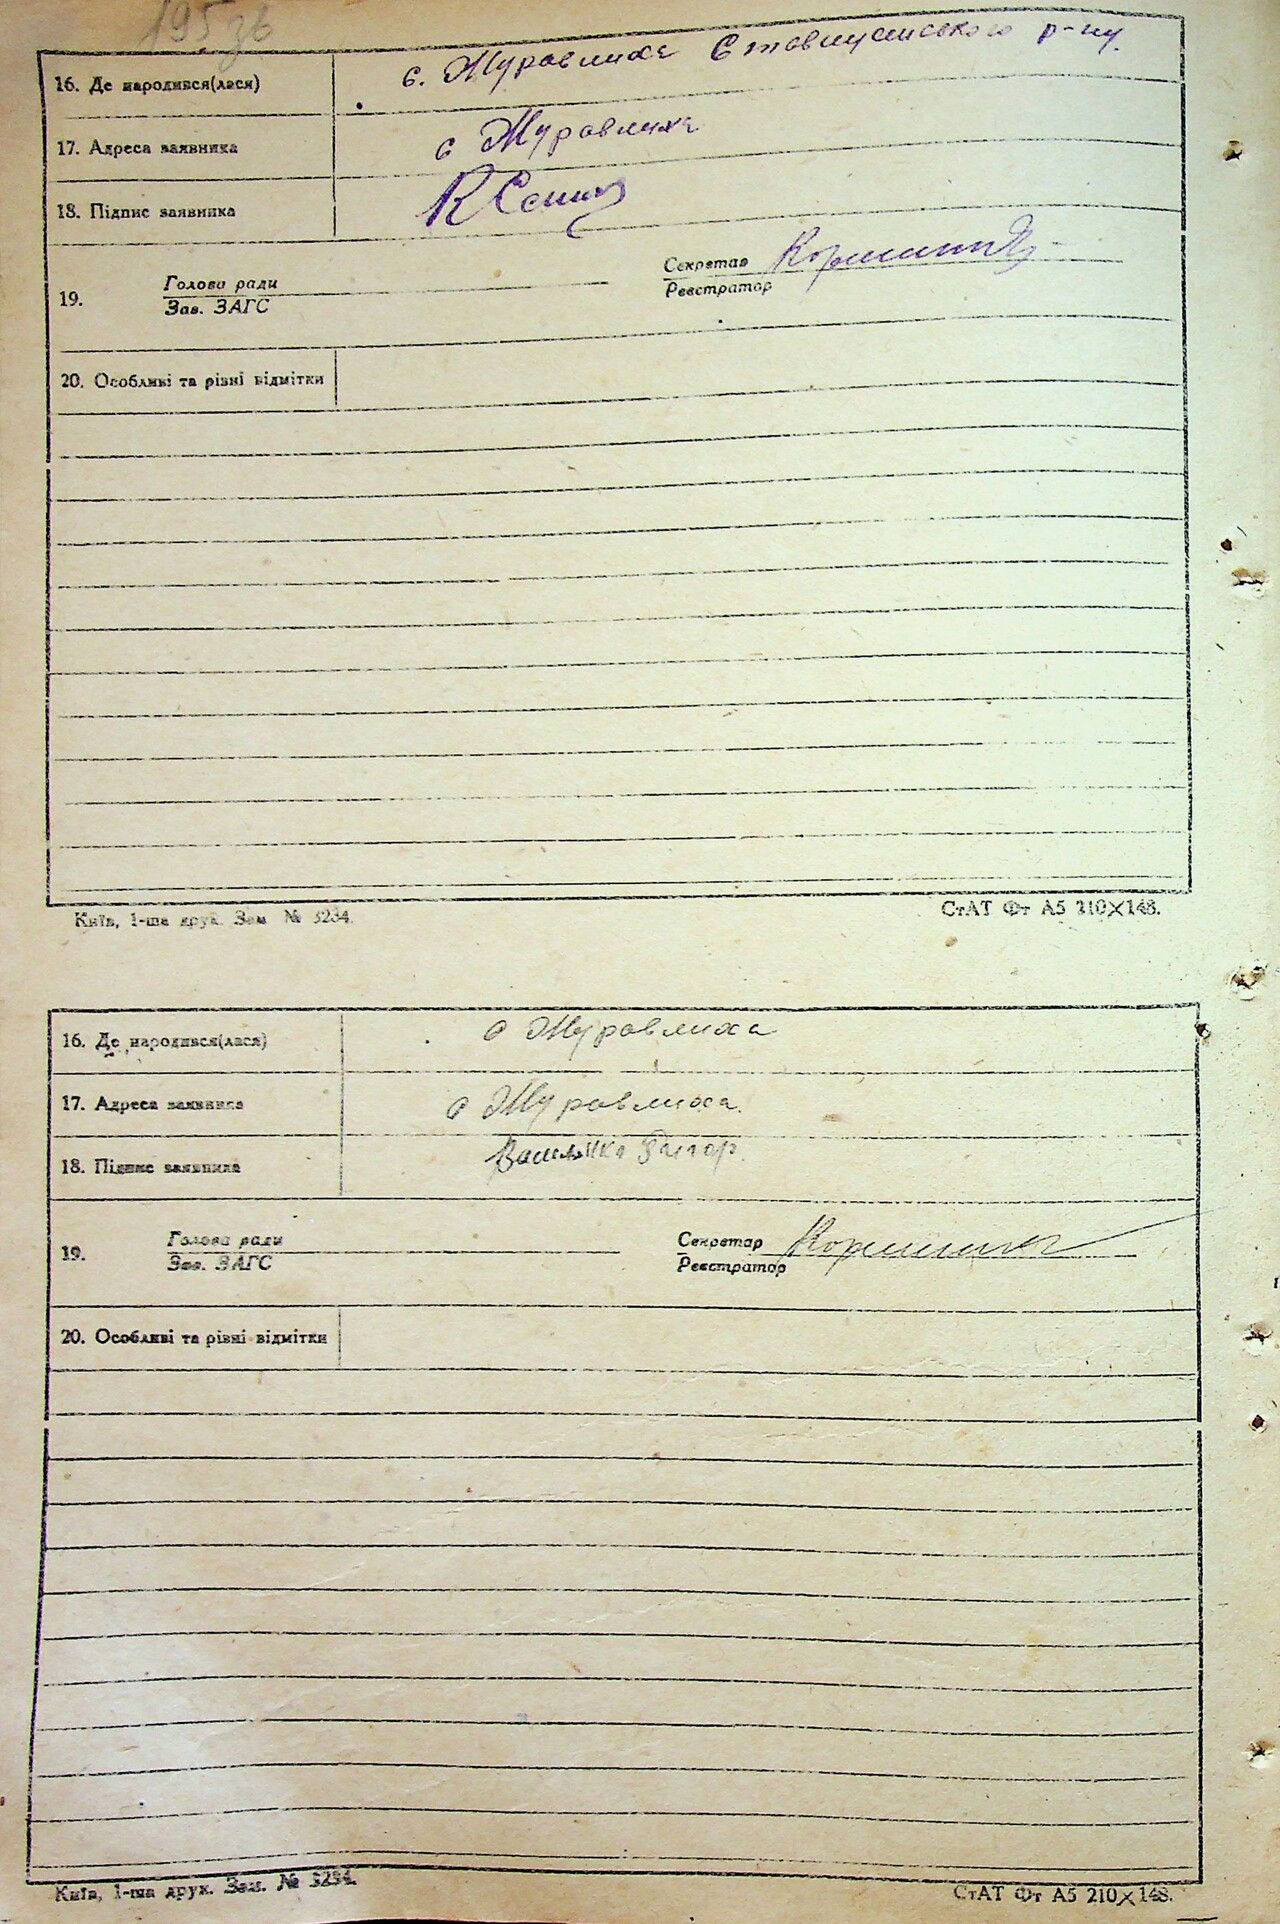 195 зв
16. Де народився(лася) с. Журавлиха Ставищанського р-ну.
17. Адреса заявника с Журавлиха
18. Підпис заявника
19. Голова ради Секретар
Зав. ЗАГС Реєстратор
20. Особливі та різні відмітки
Київ, 1-ша друк. Зам № 5234. СтАТ Фт А5 210×148.
16. Де народився(лася) с Журавлиха
17. Адреса заявника с Журавлиха.
18. Підпис заявника
19. Голова ради Секретар
Зав. ЗАГС Реєстратор
20. Особливі та різні відмітки
Київ, 1-ша друк. Зам. № 5234. СтАТ Фт А5 210×148.